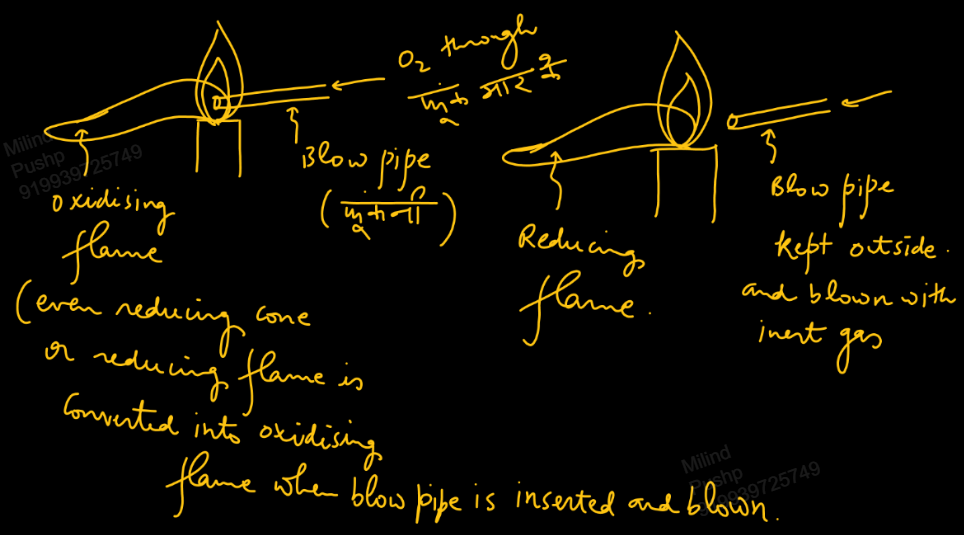 O₂ through
फूंक मार के
Blow pipe
(फूंकनी)
oxidising
flame
(even reducing cone
or reducing flame is
Converted into oxidising
flame when blow pipe is inserted and blown.
Reducing
flame.
Blow pipe
kept outside.
and blown with
inert gas
Milind
Pushp
919939725749
Milind
Pushp
919939725749